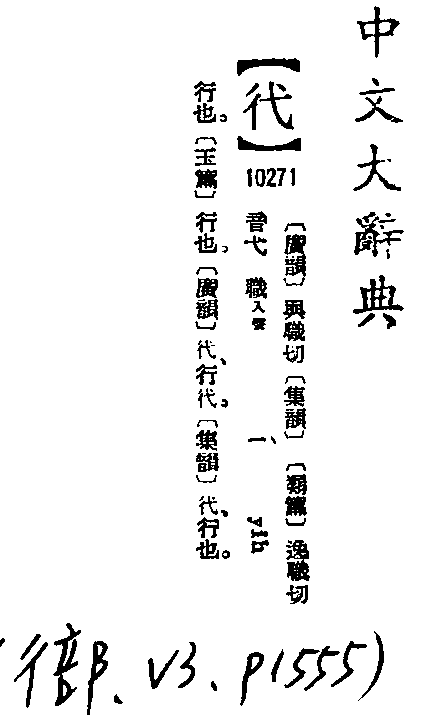 中文大辭典
【㣔】
10271
〔廣韻〕與職切〔集韻〕〔類篇〕逸職切
音弋 職入聲 一、 yih
行也。〔玉篇〕行也。〔廣韻〕㣔、行㣔。〔集韻〕㣔、行也。
(彳部、V3、P1555)